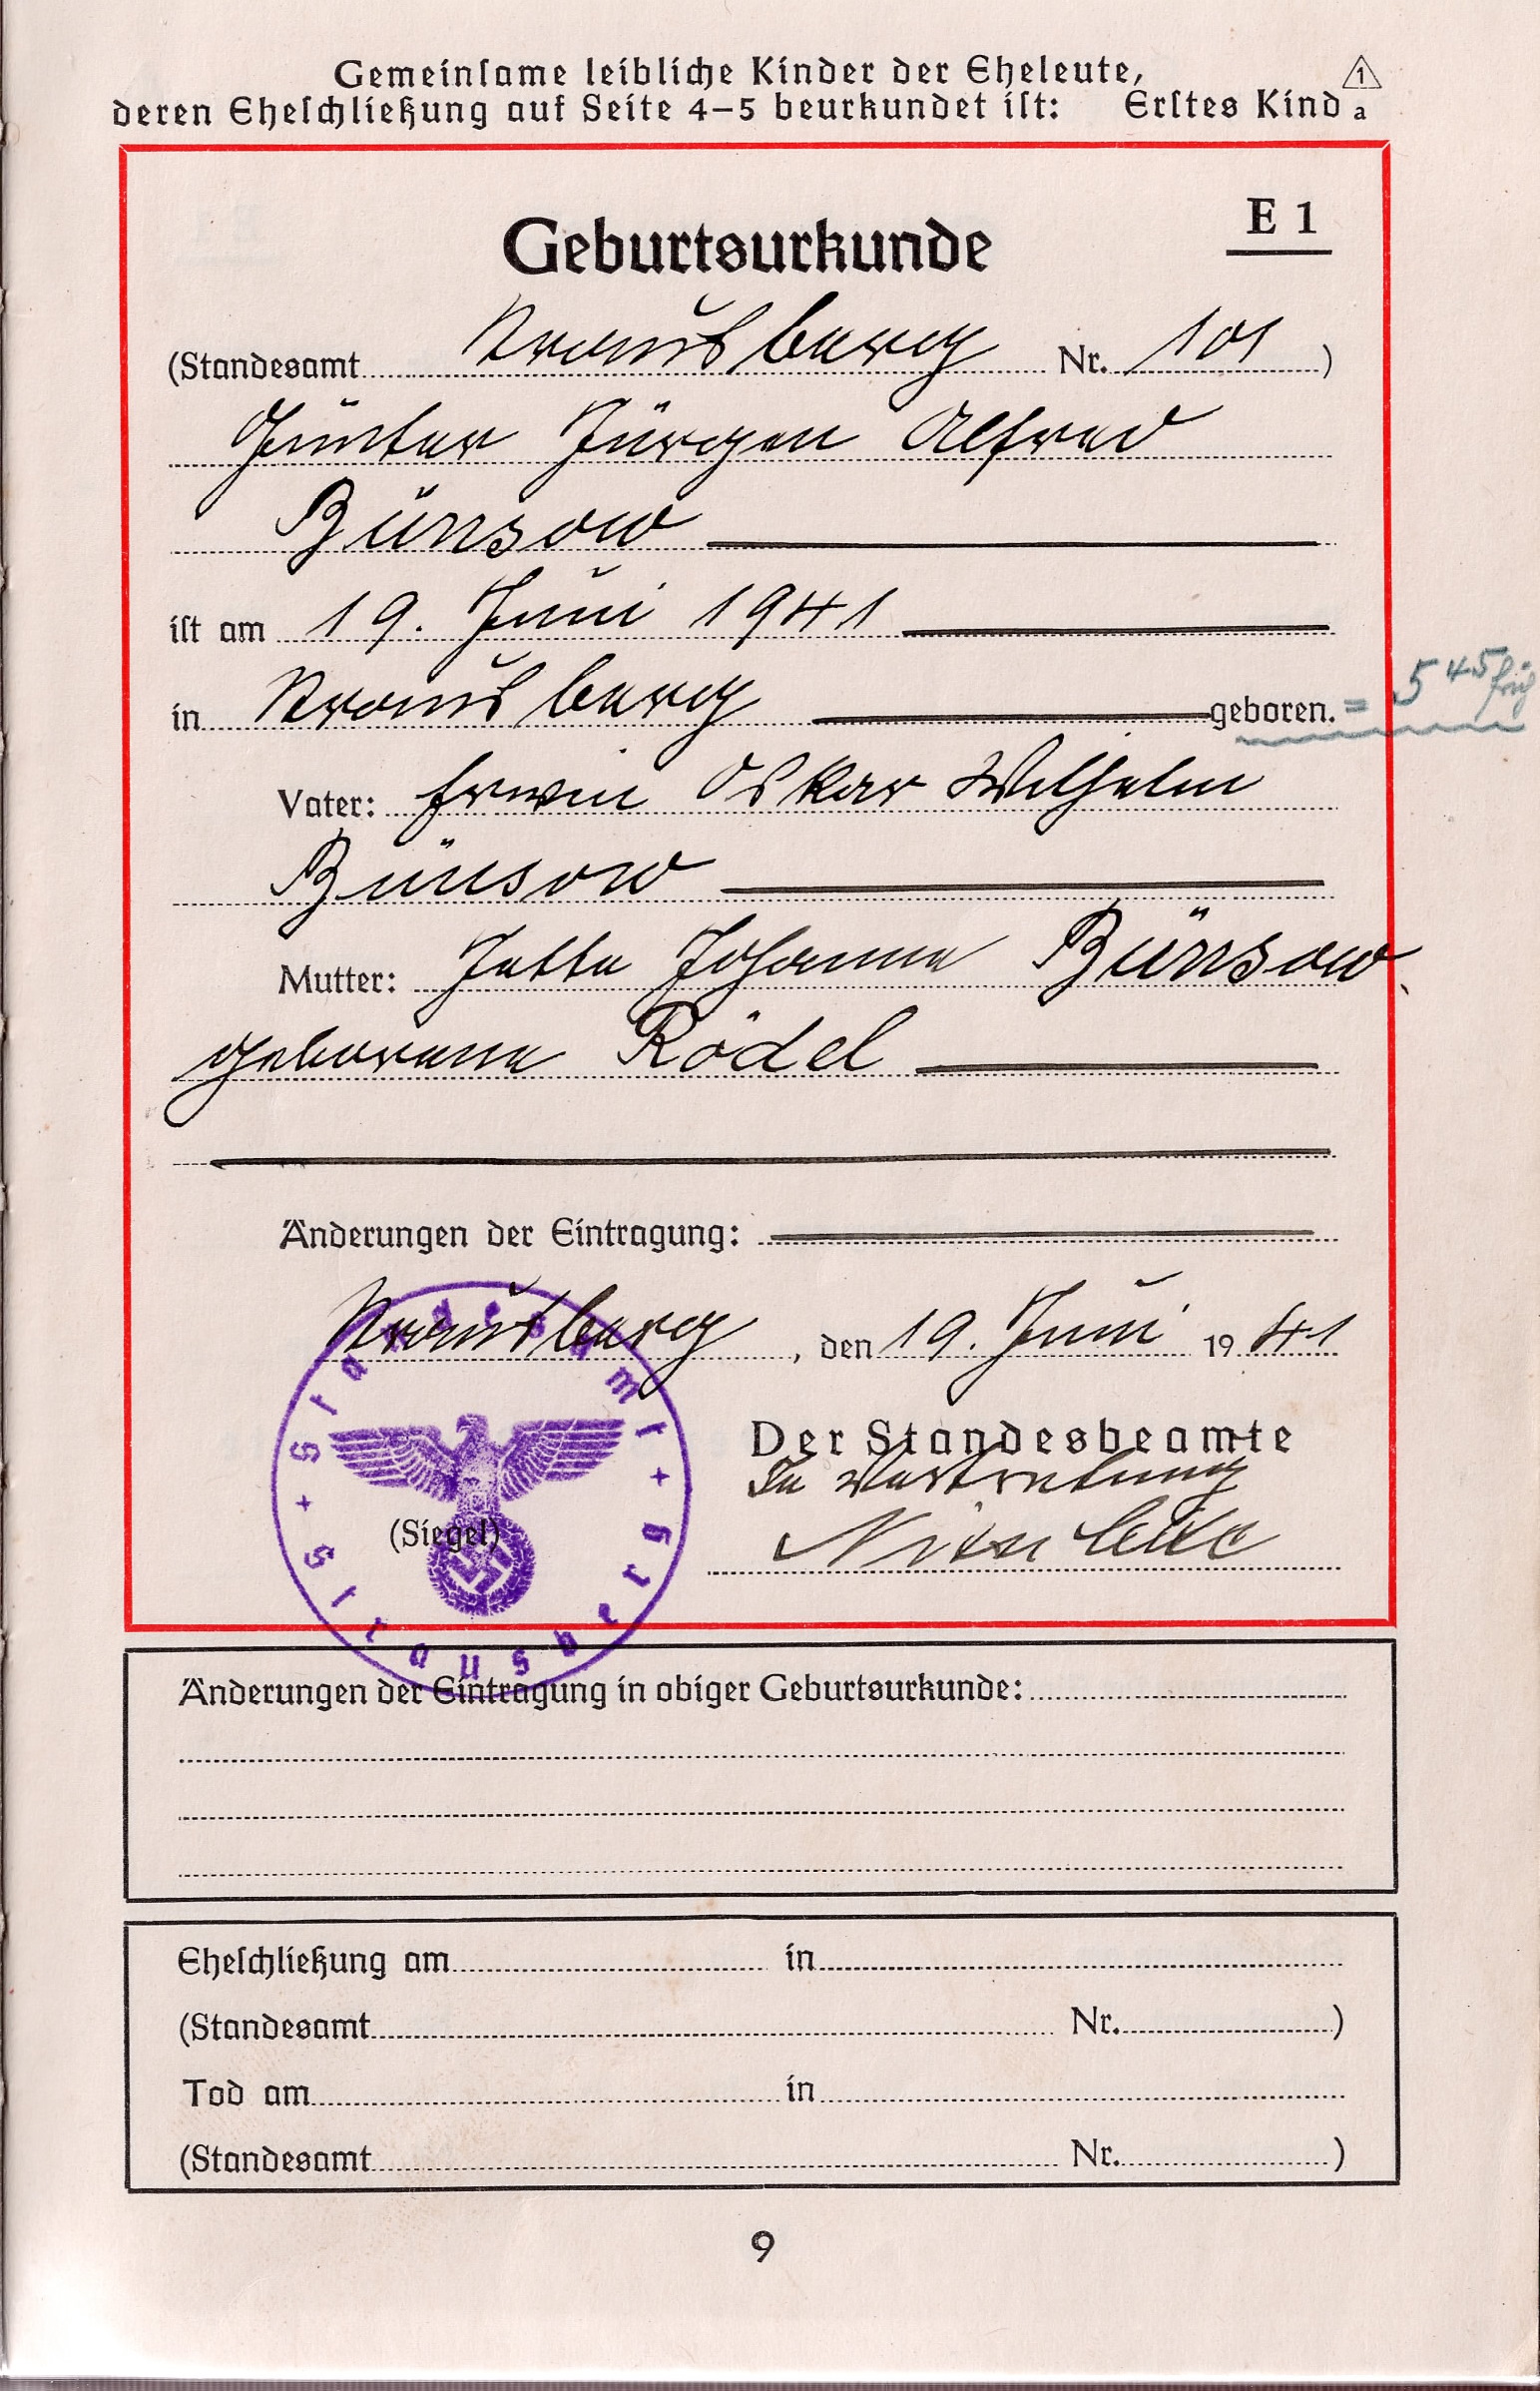 Gemeinsame leibliche Kinder der Eheleute,
deren Eheschließung auf Seite 4–5 beurkundet ist: Erstes Kind 1 a
E 1
Geburtsurkunde
(Standesamt Strausberg Nr. 101)
Günter Jürgen Alfred
Bünsow
ist am 19. Juni 1941
in Strausberg geboren. = 5 45 früh
Vater: Erwin Oskar Wilhelm
Bünsow
Mutter: Jutta Johanna Bünsow
geborene Rödel
Änderungen der Eintragung:
Strausberg, den 19. Juni 1941
Der Standesbeamte
In Vertretung
(Siegel)
Standesamt + Strausberg +
Änderungen der Eintragung in obiger Geburtsurkunde:
Eheschließung am in
(Standesamt Nr. )
Tod am in
(Standesamt Nr. )
9